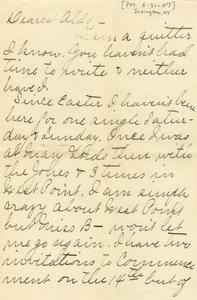 [PM 5-31-07]
Irvington, NY
Dearest Aldo,
I am a quitter
I know. You haven't had
time to write & neither
have I.
Since Easter I haven't been
here for one single Satur-
day & Sunday. Once I was
at Lords then with
the & 3 times in
West Point. I am simply
crazy about West Point
but Miss B— won't let
me go again. I have two
invitations to Commence-
ment on the 14th but of